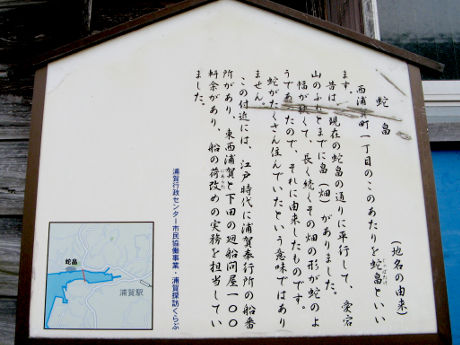 蛇畠
(地名の由来)
西浦賀町一丁目のこのあたりを蛇畠といい
ます。
昔は、現在の蛇畠の通りに平行して、愛宕
山のふもとまでに畠(畑)がありました。
幅が狭くて、長く続くその畑の形が蛇のよ
うであったので、それに由来したものです。
蛇がたくさん住んでいたという意味ではあり
ません。
この付近には、江戸時代に浦賀奉行所の船番
所があり、東西浦賀と下田の廻船問屋一〇〇
軒余があり、船の荷改めの実務を担当してい
ました。
浦賀行政センター市民協働事業・浦賀探訪くらぶ
蛇畠
浦賀駅